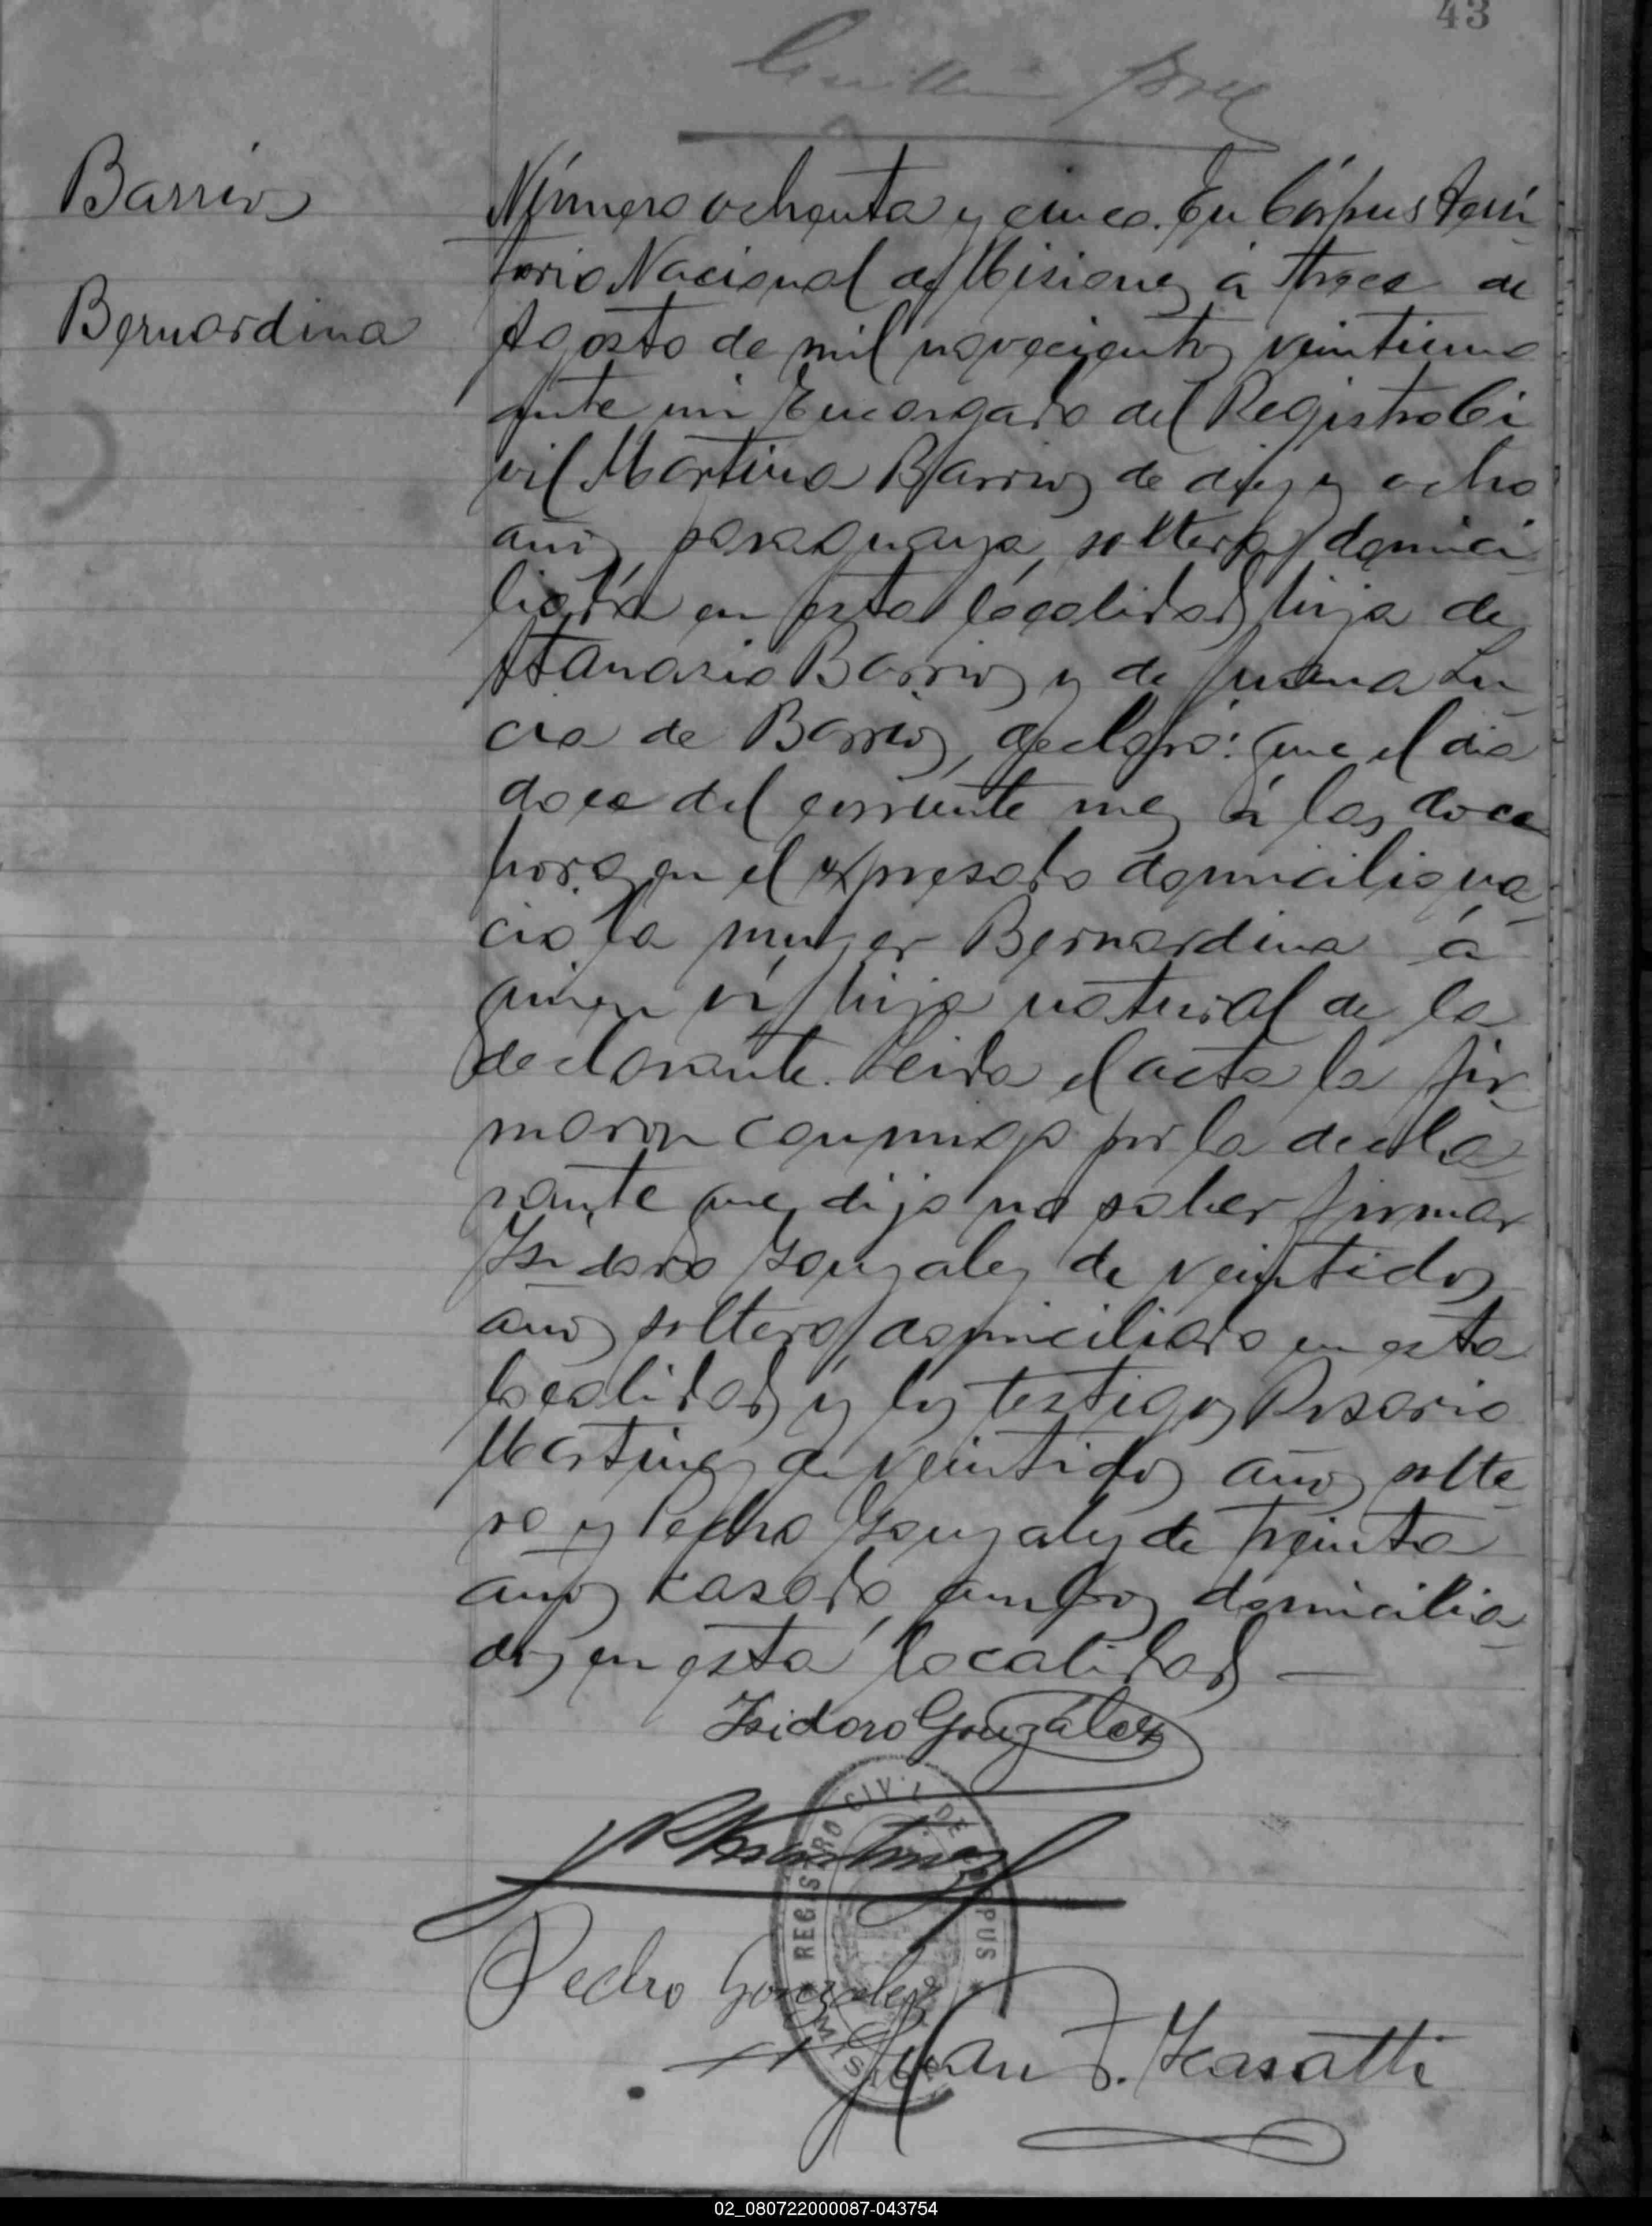 43
Barrios
Bernardina
Número ochenta y cinco. En Córpus Terri
torio Nacional de Misiones á trece de
Agosto de mil novecientos veintiuno
ante mi Encargado del Registro Ci
vil Martina Barrios de diez y ocho
años, paraguaya, soltera, domici
liada en esta localidad, hija de
Atanasio Barrios y de Juana Lu
cia de Barrios, declaró: Que el dia
doce del corriente mes á las doce
horas en el expresado domicilio na
ció la mujer Bernardina á
quien ví, hija natural de la
declarante. Leida el acta la fir
maron conmigo por la decla
rante que dijo no saber firmar
Isidoro Gonzalez de veintidos
años, soltero, domiciliado en esta
localidad y los testigos Rosario
Martinez de veintidos años solte
ro y Pedro Gonzalez de treinta
años casado, ambos domicilia
dos en esta localidad —
Isidoro González
R Martinez
Pedro Gonzalez
Juan F.
REGISTRO CIVIL DE CORPUS
MISIONES
02_080722000087-043754